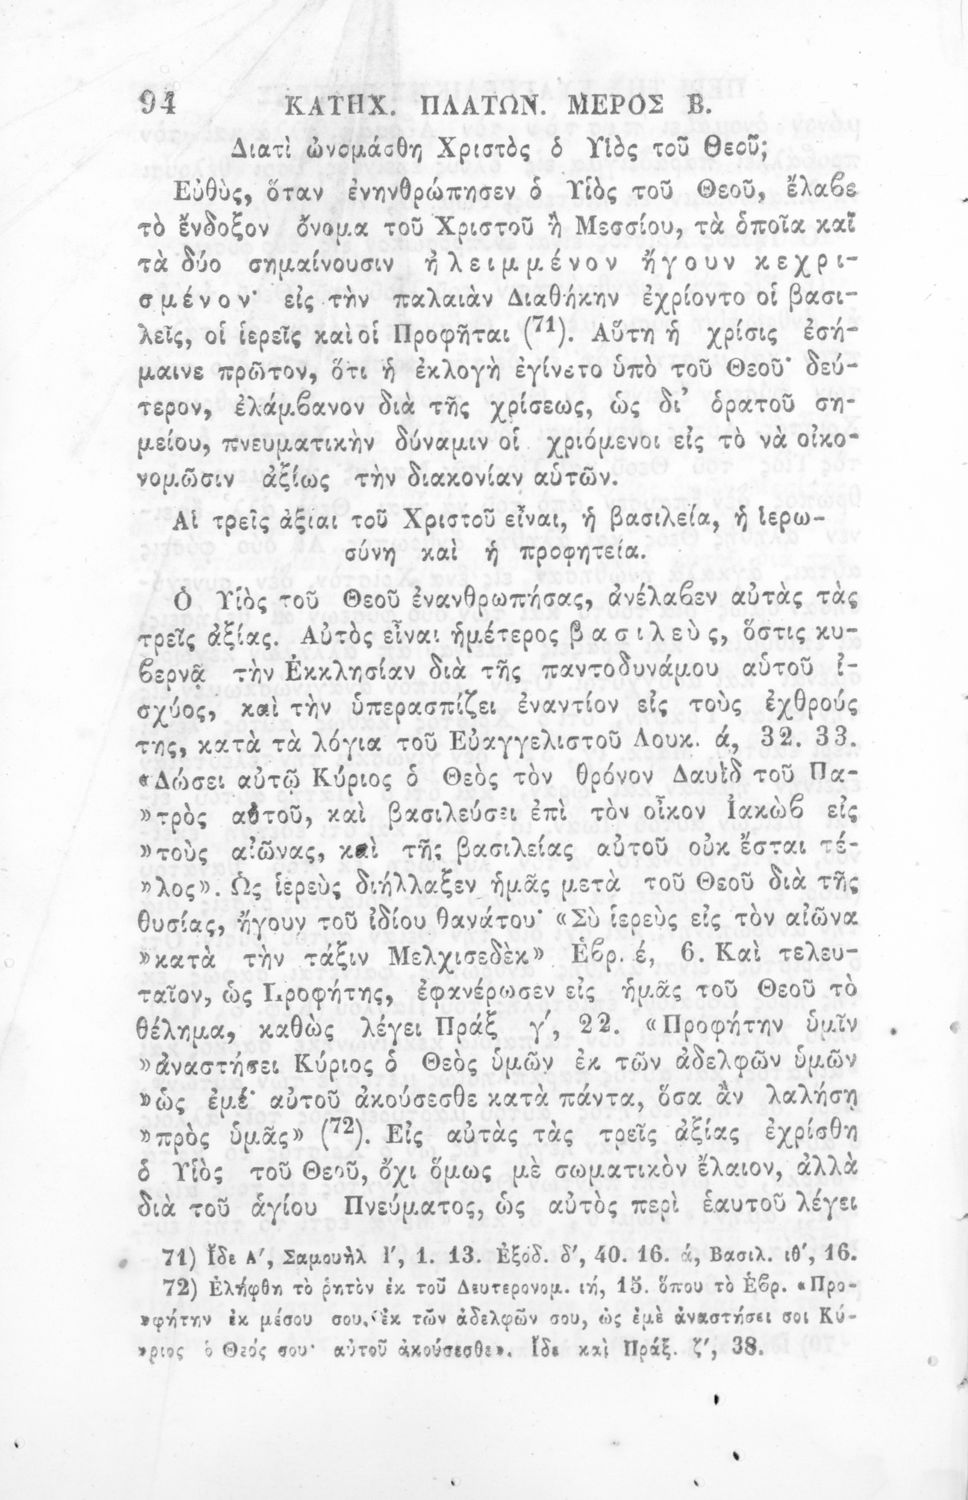 94 ΚΑΤΗΧ. ΠΛΑΤΩΝ. ΜΕΡΟΣ Β.
Διατὶ ὠνομάσθη Χριστὸς ὁ Υἱὸς τοῦ Θεοῦ;
Εὐθὺς, ὅταν ἐνηνθρώπησεν ὁ Υἱὸς τοῦ Θεοῦ, ἔλαβε
τὸ ἔνδοξον ὄνομα τοῦ Χριστοῦ ἢ Μεσσίου, τὰ ὁποῖα καὶ
τὰ δύο σημαίνουσιν ἠλειμμένον ἤγουν κεχρι-
σμένον· εἰς τὴν παλαιὰν Διαθήκην ἐχρίοντο οἱ βασι-
λεῖς, οἱ ἱερεῖς καὶ οἱ Προφῆται (71). Αὕτη ἡ χρίσις ἐσή-
μαινε πρῶτον, ὅτι ἡ ἐκλογὴ ἐγίνετο ὑπὸ τοῦ Θεοῦ· δεύ-
τερον, ἐλάμβανον διὰ τῆς χρίσεως, ὡς δι' ὁρατοῦ ση-
μείου, πνευματικὴν δύναμιν οἱ χριόμενοι εἰς τὸ νὰ οἰκο-
νομῶσιν ἀξίως τὴν διακονίαν αὐτῶν.
Αἱ τρεῖς ἀξίαι τοῦ Χριστοῦ εἶναι, ἡ βασιλεία, ἡ ἱερω-
σύνη καὶ ἡ προφητεία.
Ὁ Υἱὸς τοῦ Θεοῦ ἐνανθρωπήσας, ἀνέλαβεν αὐτὰς τὰς
τρεῖς ἀξίας. Αὐτὸς εἶναι ἡμέτερος βασιλεὺς, ὅστις κυ-
βερνᾷ τὴν Ἐκκλησίαν διὰ τῆς παντοδυνάμου αὑτοῦ ἰ-
σχύος, καὶ τὴν ὑπερασπίζει ἐναντίον εἰς τοὺς ἐχθρούς
της, κατὰ τὰ λόγια τοῦ Εὐαγγελιστοῦ Λουκ. ά, 32. 33.
«Δώσει αὐτῷ Κύριος ὁ Θεὸς τὸν θρόνον Δαυὶδ τοῦ Πα-
»τρὸς αὑτοῦ, καὶ βασιλεύσει ἐπὶ τὸν οἶκον Ἰακὼβ εἰς
»τοὺς αἰῶνας, καὶ τῆς βασιλείας αὐτοῦ οὐκ ἔσται τέ-
»λος». Ὡς ἱερεὺς διήλλαξεν ἡμᾶς μετὰ τοῦ Θεοῦ διὰ τῆς
θυσίας, ἤγουν τοῦ ἰδίου θανάτου· «Σὺ ἱερεὺς εἰς τὸν αἰῶνα
»κατὰ τὴν τάξιν Μελχισεδὲκ» Ἑβρ. έ, 6. Καὶ τελευ-
ταῖον, ὡς Προφήτης, ἐφανέρωσεν εἰς ἡμᾶς τοῦ Θεοῦ τὸ
θέλημα, καθὼς λέγει Πράξ γ', 22. «Προφήτην ὑμῖν
»ἀναστήσει Κύριος ὁ Θεὸς ὑμῶν ἐκ τῶν ἀδελφῶν ὑμῶν
»ὡς ἐμέ· αὐτοῦ ἀκούσεσθε κατὰ πάντα, ὅσα ἂν λαλήσῃ
»πρὸς ὑμᾶς» (72). Εἰς αὐτὰς τὰς τρεῖς ἀξίας ἐχρίσθη
ὁ Υἱὸς τοῦ Θεοῦ, ὄχι ὅμως μὲ σωματικὸν ἔλαιον, ἀλλὰ
διὰ τοῦ ἁγίου Πνεύματος, ὡς αὐτὸς περὶ ἑαυτοῦ λέγει
71) Ἴδε Α', Σαμουὴλ Ι', 1. 13. Ἐξόδ. δ', 40. 16. ά, Βασιλ. ιθ', 16.
72) Ἐλήφθη τὸ ῥητὸν ἐκ τοῦ Δευτερονομ. ιή, 15. ὅπου τὸ Ἑβρ. «Προ-
»φήτην ἐκ μέσου σου, ἐκ τῶν ἀδελφῶν σου, ὡς ἐμὲ ἀναστήσει σοι Κύ-
»ριος ὁ Θεός σου· αὐτοῦ ἀκούσεσθε». Ἴδε καὶ Πράξ. ζ', 38.